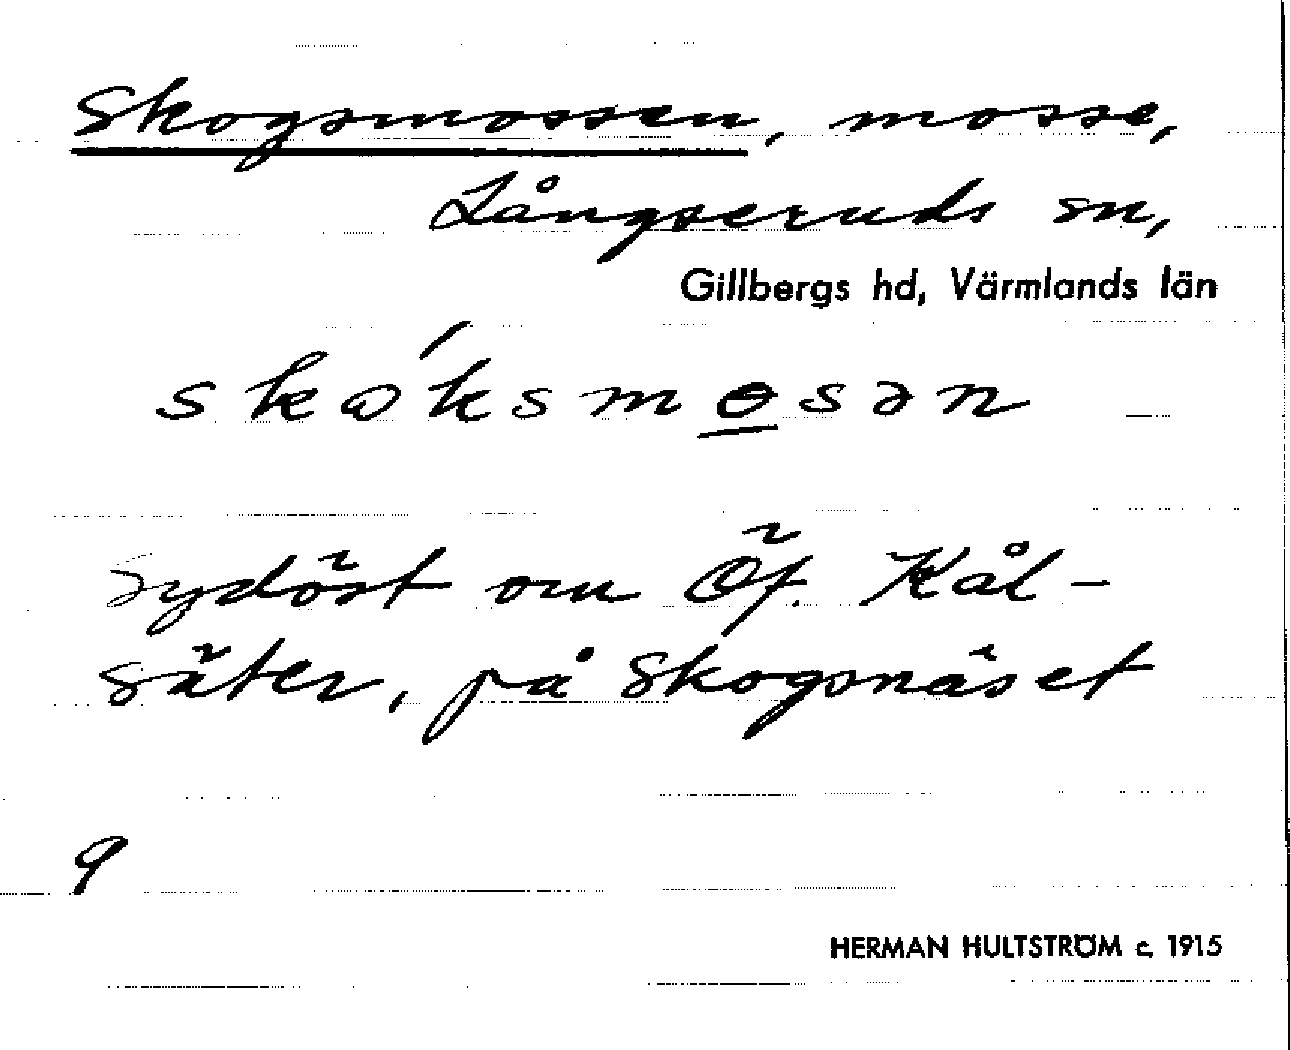 Skogsmossen, mosse,
Långseruds sn,
Gillbergs hd, Värmlands län
skɷ́ksmo̲sən
Sydöst om Öf. Kål-
säter, på Skogsnäset
9
HERMAN HULTSTRÖM c. 1915